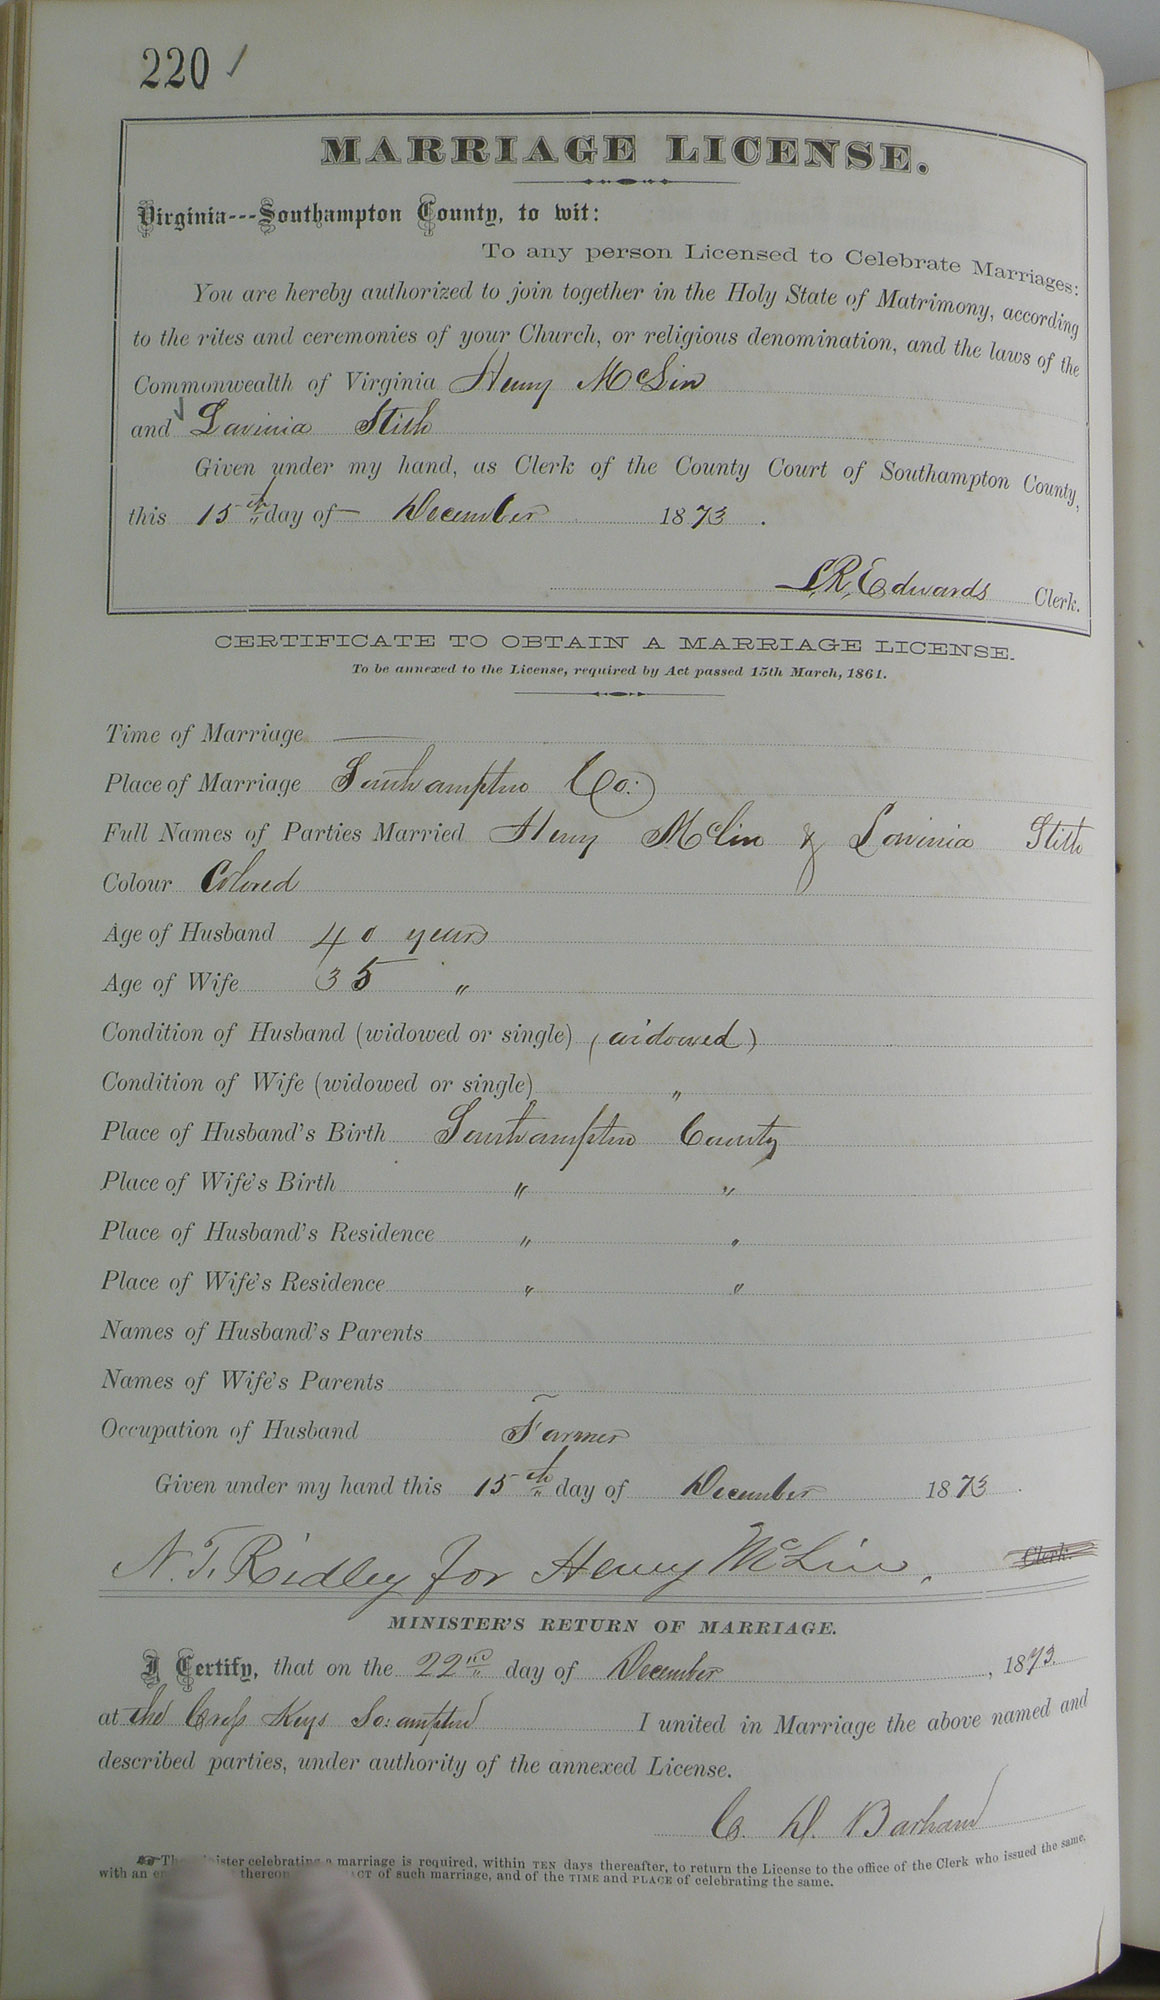 220 /
MARRIAGE LICENSE.
Virginia---Southampton County, to wit:
To any person Licensed to Celebrate Marriages:
You are hereby authorized to join together in the Holy State of Matrimony, according
to the rites and ceremonies of your Church, or religious denomination, and the laws of the
Commonwealth of Virginia Henry McLin
and Lavinia Stith
Given under my hand, as Clerk of the County Court of Southampton County,
this 15th day of December 1873.
L.R. Edwards Clerk.
CERTIFICATE TO OBTAIN A MARRIAGE LICENSE.
To be annexed to the License, required by Act passed 15th March, 1861.
Time of Marriage —
Place of Marriage Southampton Co:
Full Names of Parties Married Henry McLin & Lavinia Stith
Colour Colored
Age of Husband 40 years
Age of Wife 35 "
Condition of Husband (widowed or single) (widowed)
Condition of Wife (widowed or single) "
Place of Husband's Birth Southampton County
Place of Wife's Birth " "
Place of Husband's Residence " "
Place of Wife's Residence " "
Names of Husband's Parents
Names of Wife's Parents
Occupation of Husband Farmer
Given under my hand this 15th day of December 1873.
N.T. Ridley for Henry McLin. Clerk.
MINISTER'S RETURN OF MARRIAGE.
I Certify, that on the 22nd day of December, 1873.
at the Cross Keys So:ampton I united in Marriage the above named and
described parties, under authority of the annexed License.
C. D. Barham
celebrating marriage is required, within TEN days thereafter, to return the License to the office of the Clerk who issued the same,
with an thereon of such marriage, and of the TIME and PLACE of celebrating the same.